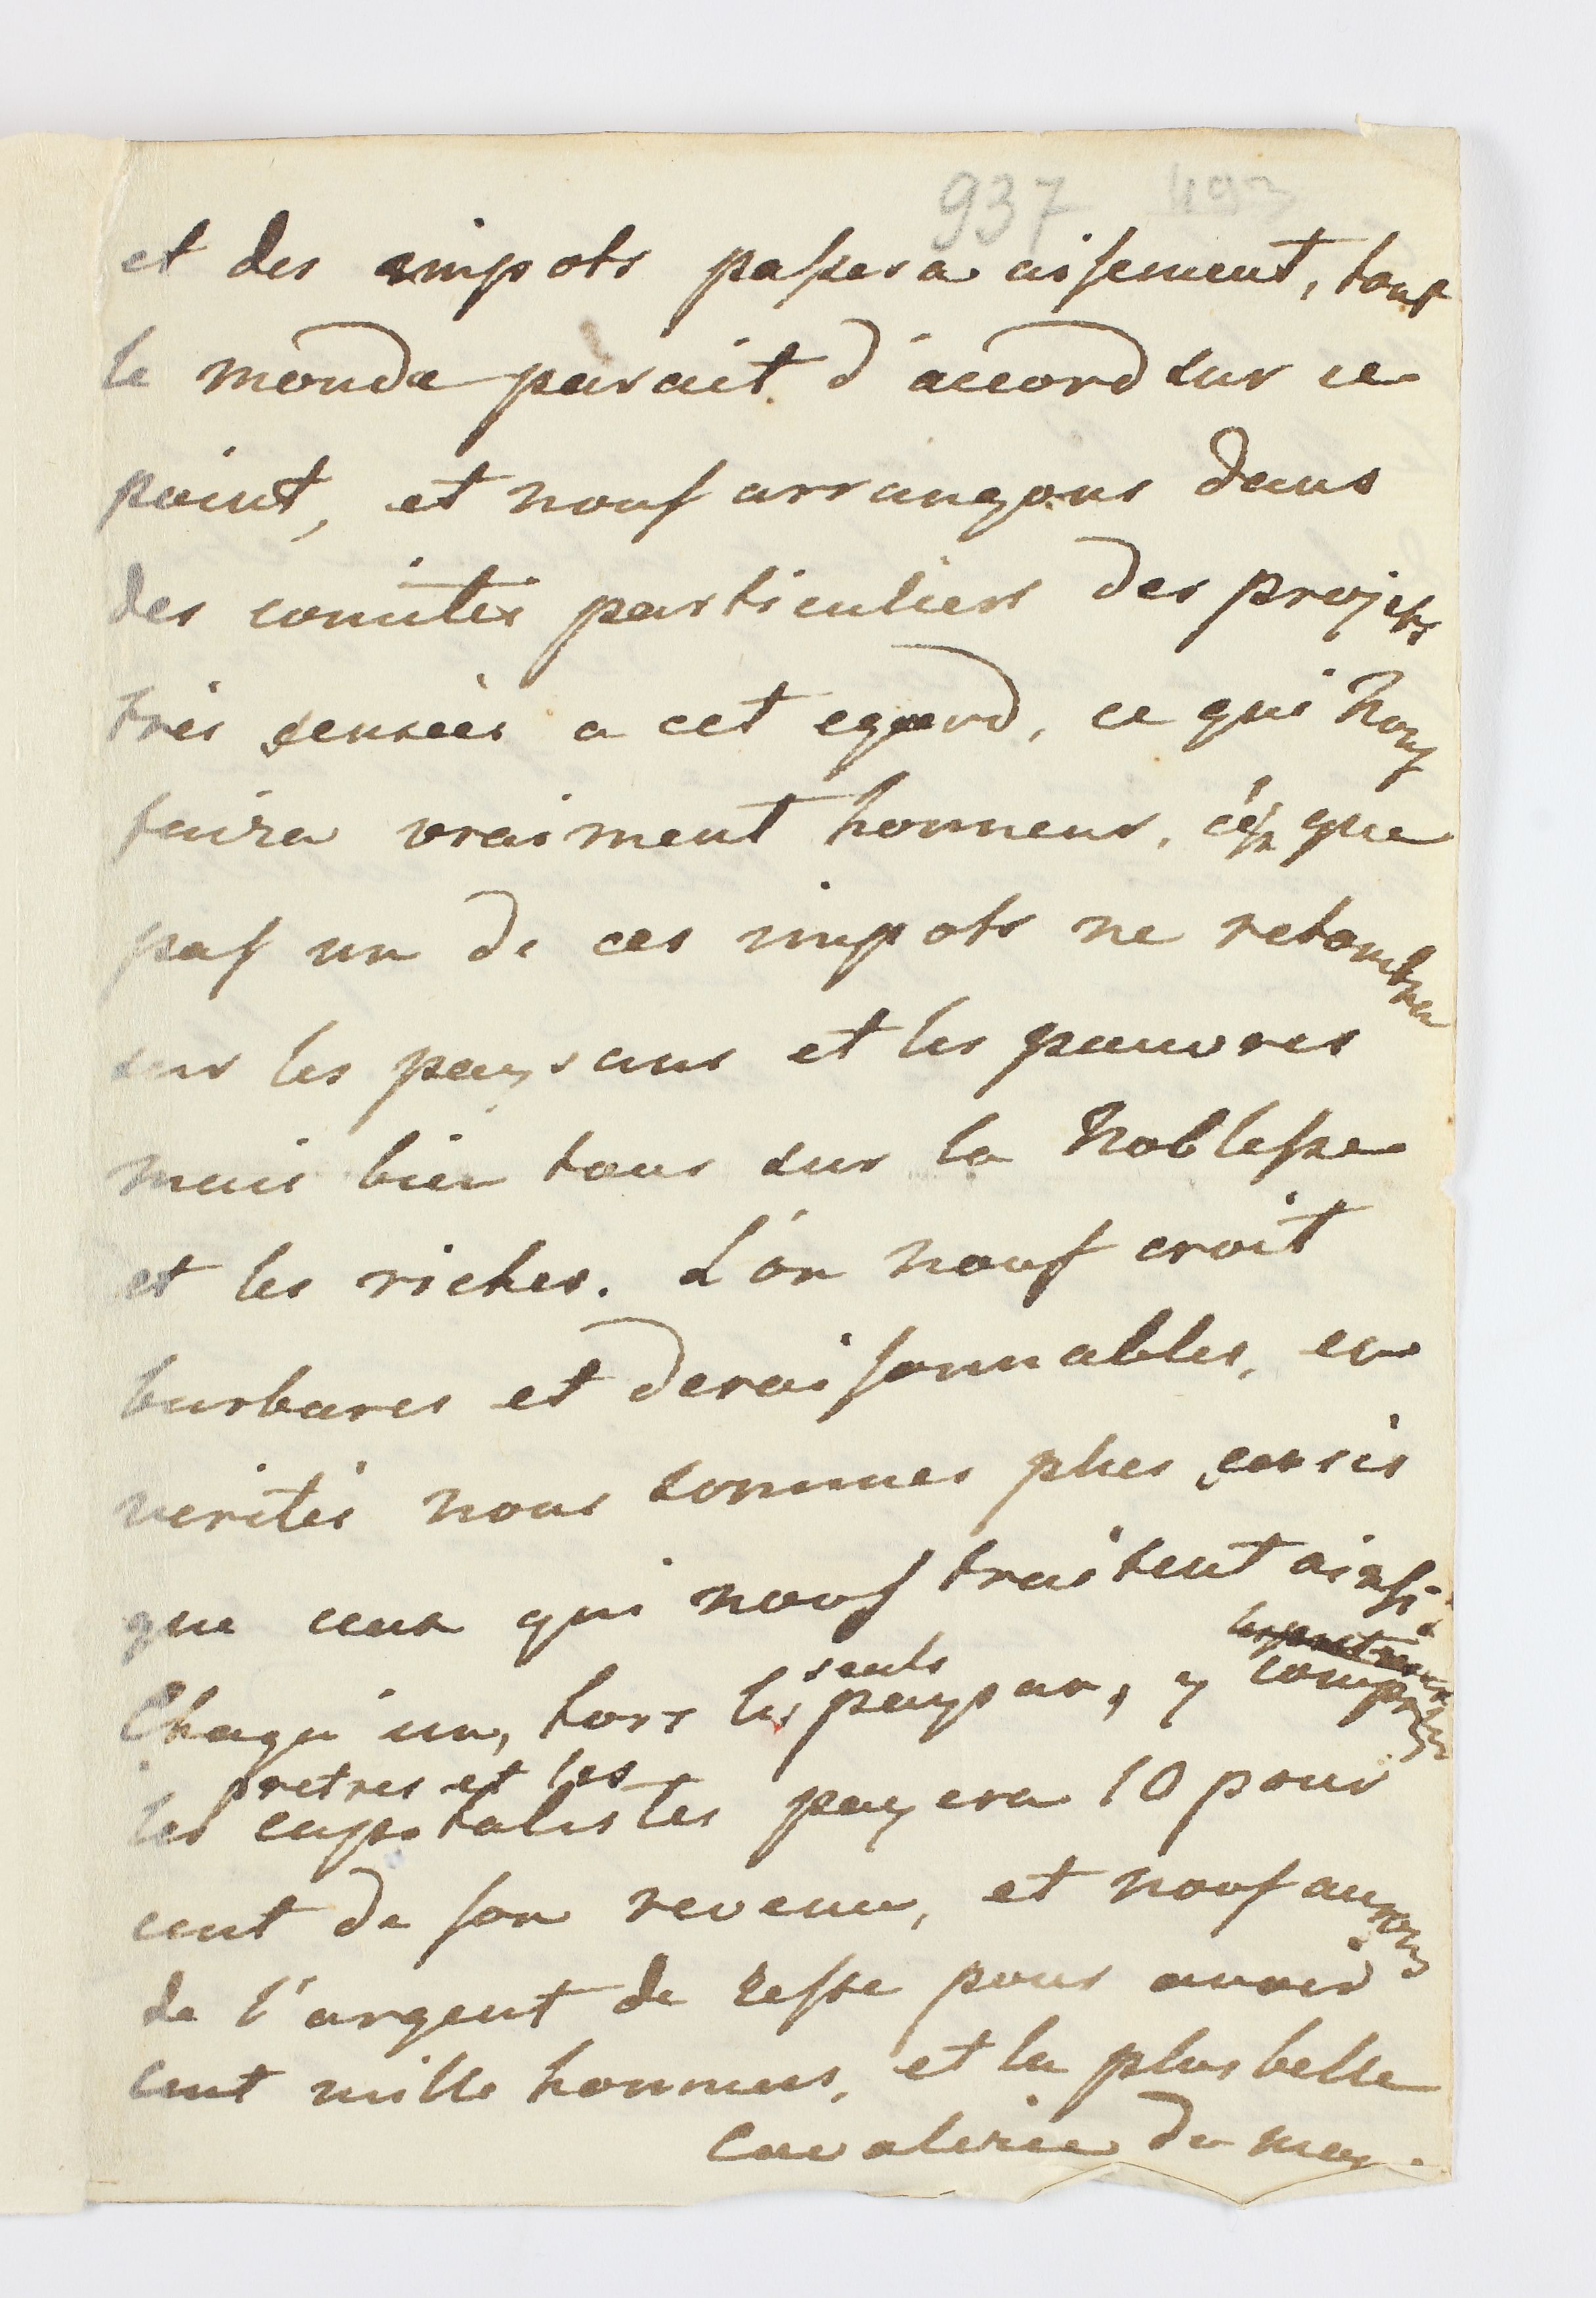 937 493
et des impots passera aisement, tout
le monde parait d'accord sur ce
point, et nous arrangons dans
des comités particuliers des projets
très senseés a cet egard, ce qui nous
faira vraiment honneur, c'est que
pas un de ces impots ne retombra
sur les paysans et les pauvres
mais bien tous sur la noblesse
et les riches. L'on nous croit
barbares et deraisonnables, en
verités nous sommes plus sensés
que ceux qui nous traitent ainsi.
les pretres
seuls
Chaqu'un, hors les paysans, y compris
pretres et les
les capitalistes payera 10 pour
cent de son revenu, et nous aurons
de l'argent de reste pour avoir
cent mille hommes, et la plus belle
cavalerie du